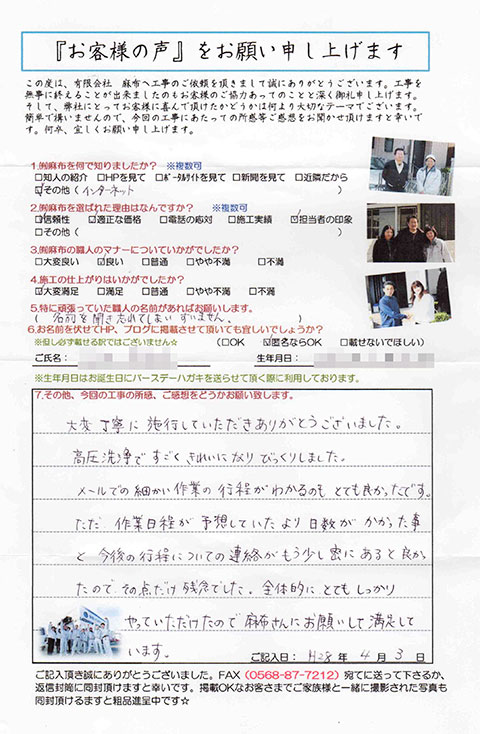 『お客様の声』をお願い申し上げます
この度は、有限会社　麻布へ工事のご依頼を頂きまして誠にありがとうございます。工事を
無事に終えることが出来ましたのもお客様のご協力あってのことと深く御礼申し上げます。
そして、弊社にとってお客様に喜んで頂けたかどうかは何より大切なテーマでございます。
簡単で構いませんので、今回の工事にあたっての所感等ご感想をお聞かせ頂けますと幸いで
す。何卒、宜しくお願い申し上げます。
1.㈲麻布を何で知りましたか？　※複数可
□知人の紹介　□HPを見て　□ﾎﾟｰﾀﾙｻｲﾄを見て　□新聞を見て　□近隣だから
☑その他（ インターネット ）
2.㈲麻布を選ばれた理由はなんですか？　※複数可
☑信頼性　☑適正な価格　□電話の応対　□施工実績　☑担当者の印象
□その他（　）
3.㈲麻布の職人のマナーについていかがでしたか？
□大変良い　☑良い　□普通　□やや不満　□不満
4.施工の仕上がりはいかがでしたか？
☑大変満足　□満足　□普通　□やや不満　□不満
5.特に頑張っていた職人の名前があればお願いします。
（ 名前を聞き忘れてしまいすいません。 ）
6.お名前を伏せてHP、ブログに掲載させて頂いても宜しいでしょうか？
※但し必ず載せる訳ではございません☆　（□OK　☑匿名ならOK　□載せないでほしい）
ご氏名：　生年月日：
※生年月日はお誕生日にバースデーハガキを送らせて頂く際に利用しております。
7.その他、今回の工事の所感、ご感想をどうかお願い致します。
大変丁寧に施行していただきありがとうございました。
高圧洗浄ですごくきれいになりびっくりしました。
メールでの細かい作業の行程がわかるのもとても良かったです。
ただ 作業日程が予想していたより日数がかかった事
と今後の行程についての連絡がもう少し密にあると良か
たので その点だけ残念でした。全体的にとてもしっかり
やっていただけたので麻布さんにお願いして満足して
います。
ご記入日：H28 年 4 月 3 日
ご記入頂き誠にありがとうございました。FAX（0568-87-7212）宛てに送って下さるか、
返信封筒に同封頂けますと幸いです。掲載OKなお客さまでご家族様と一緒に撮影された写真も
同封頂けるますと粗品進呈中です☆